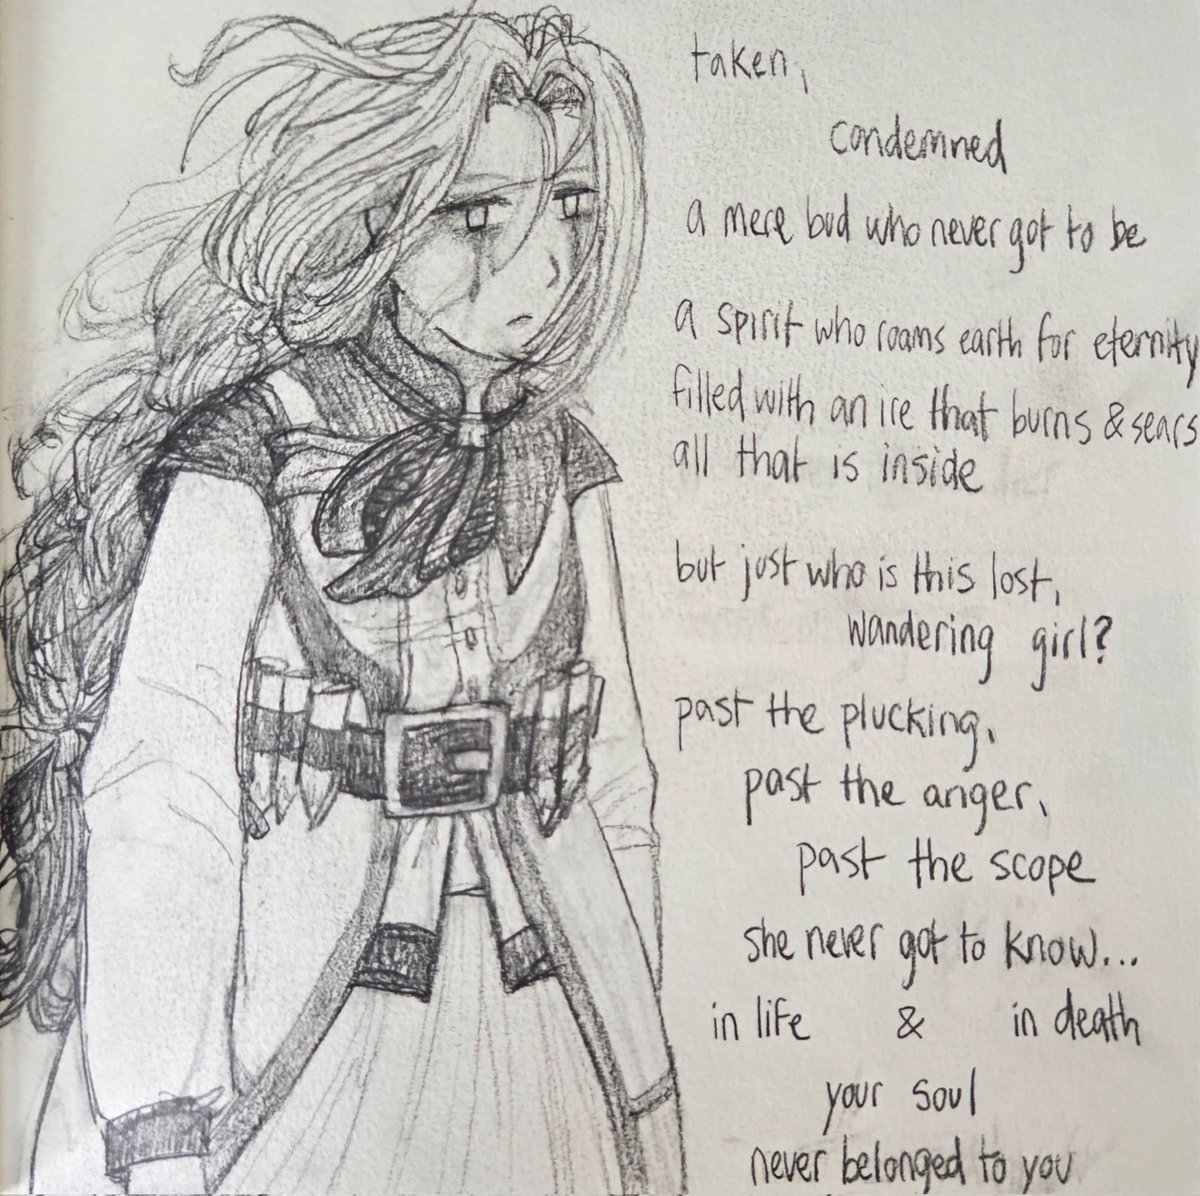 taken,
condemned
a mere bud who never got to be
a spirit who roams earth for eternity
filled with an ice that burns & sears
all that is inside
but just who is this lost,
wandering girl?
past the plucking,
past the anger,
past the scope
she never got to know...
in life & in death
your soul
never belonged to you